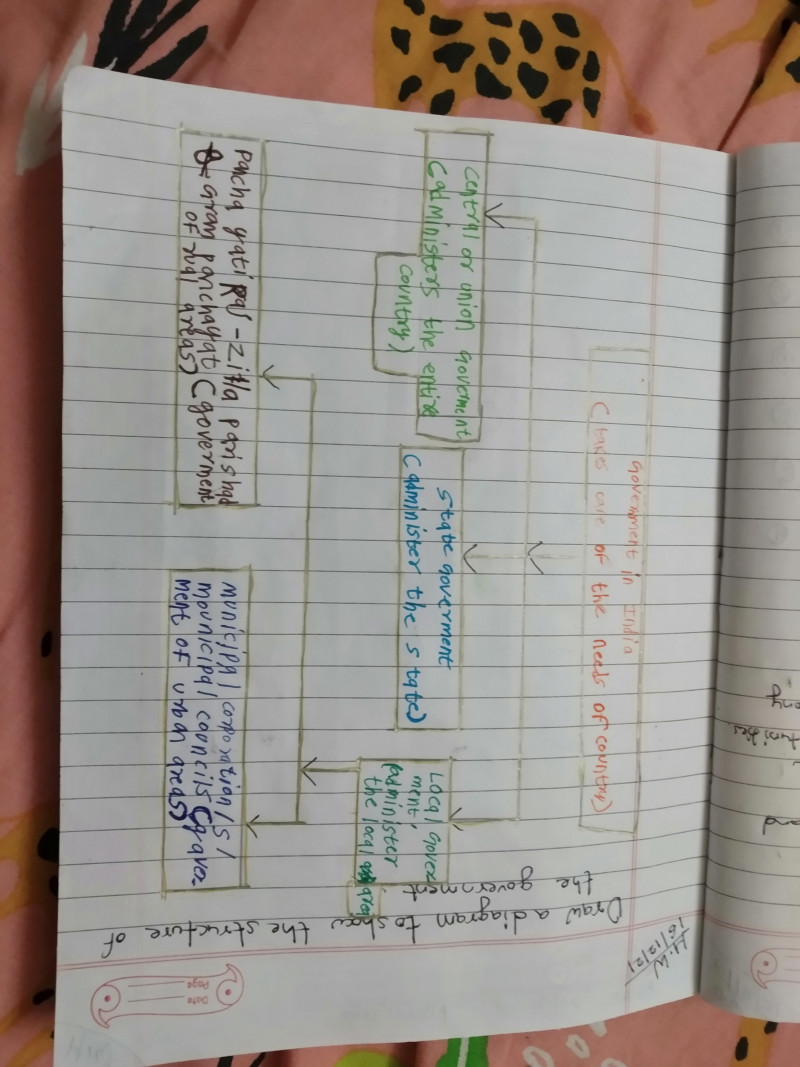 H.W
16/12/21
Draw a diagram to show the structure of
the government
Government in India
(takes care of the needs of country)
central or union goverment
(administers the entire
country)
state goverment
(administer the state)
Local gover
ment,
administer
the local area
Pancha yati raj - zilla parishad
gram panchayat (goverment
of rual areas)
municipal corporation/s/
mounicipal councils (gover
ment of urban areas)
Page
Date
and